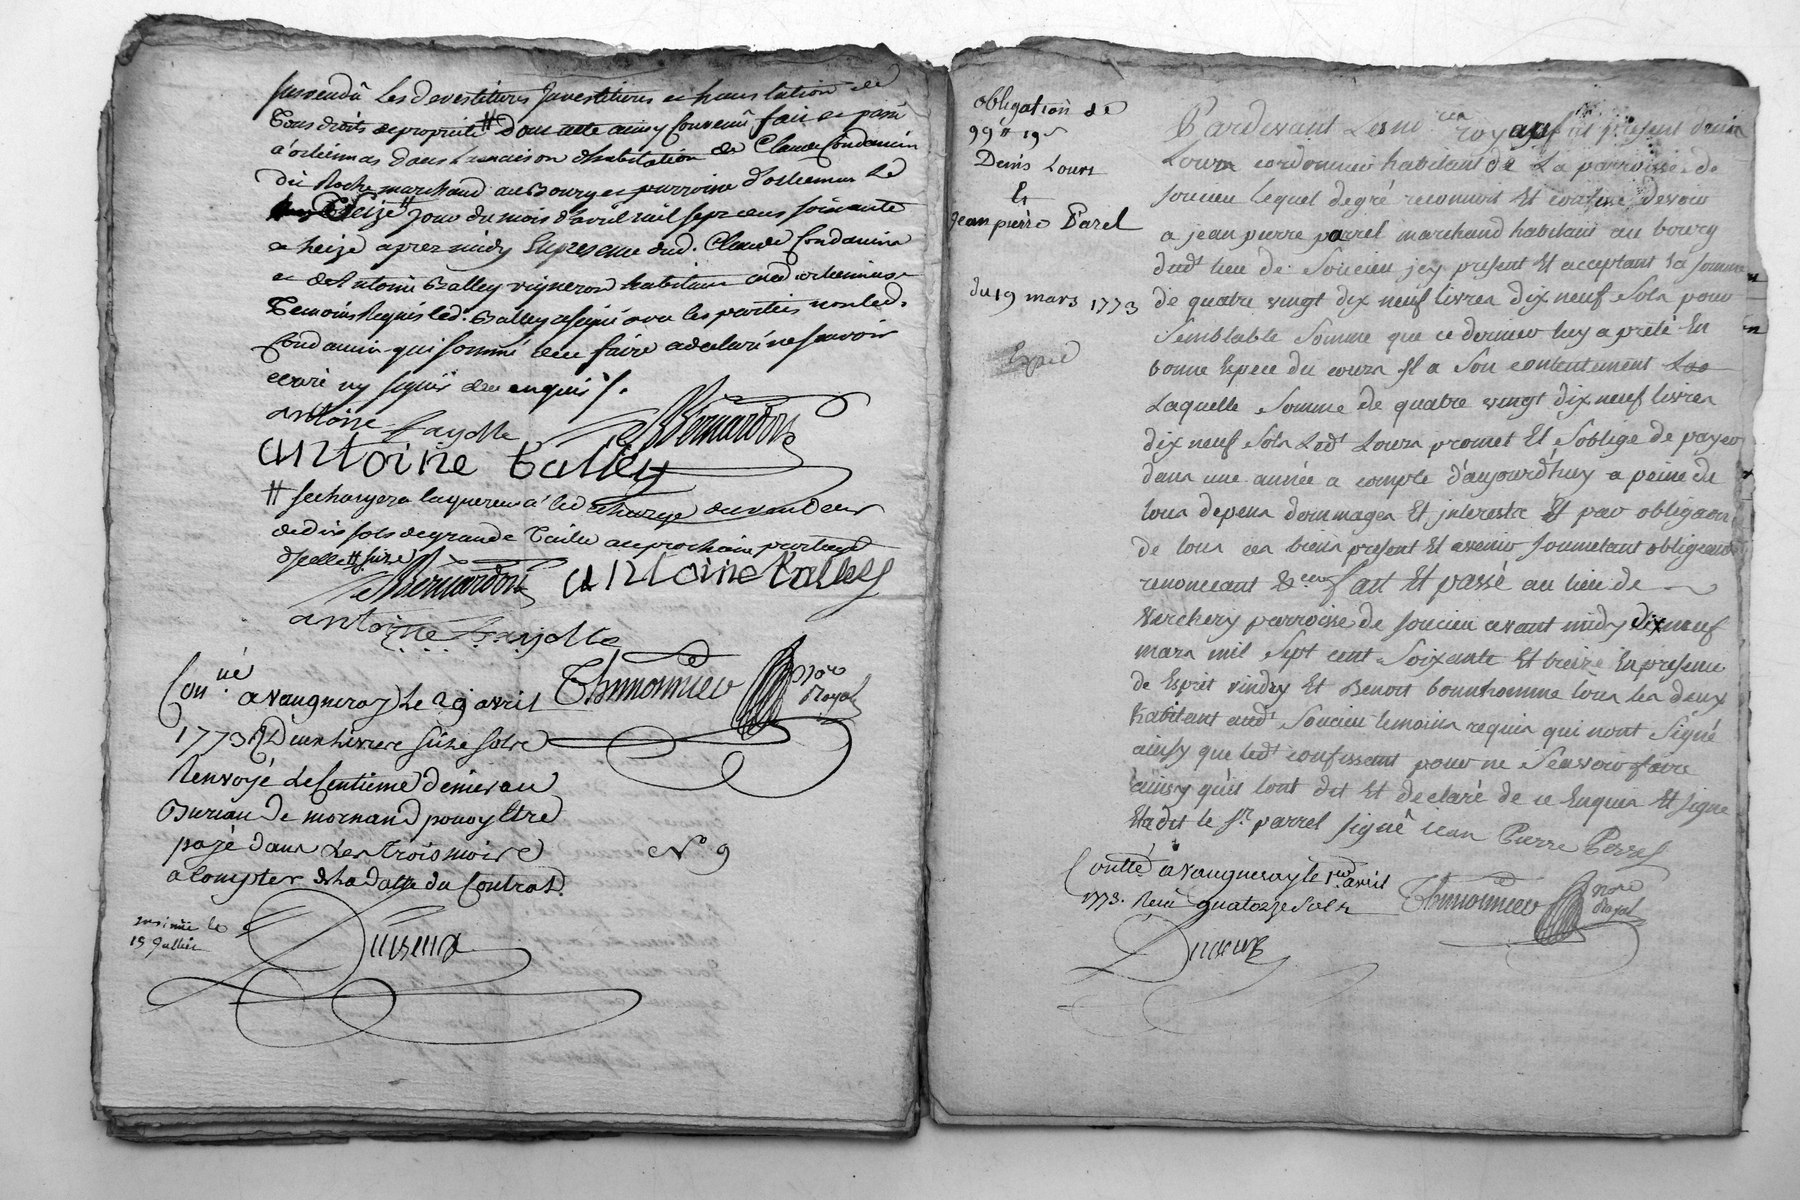 les devestitures Investitures et translation de
tous droits de propriété # Dont acte ainsy Convenu fait et passé
a orlienas dans la maison d'habitation de Claude Condamin
du Roche marchand au Bourg et parroisse d'orlienas le
treize # jour du mois d'avril mil sept cens soixante
et treize apres midy En presence dud. Claude Condamin
et de Antoine Balley vigneron habitans aud orlienas
Temoins Requis led. Balley a signé avec les parties non led.
Condamin qui sommé de ce faire a declaré ne scavoir
ecrire ny signer de ce enquis /.
antoine fayolle Bernardon
antoine balley
# se chargera l'acquereur a la decharge du vendeur
de dix sols de grande Taille au prochain partage
d'icelle # seize
Bernardon antoine balley
antoine fayolle
Con.né a vaugneray Le 29 avril Thimonnier no.re Royal
1773 R Deux livres seize sols
Renvoyé Le Centieme denier au
Bureau de mornand pour y Etre
payé dans Les trois mois N° 9
a Compter de la datte du Contrat.
insinué le
15 Juillet
obligation de
99# 19s
Denis Lours
Et
Jean pierre Parel
du 19 mars 1773
Expié
Pardevant Les no.res royaux fut présent denis
Lours cordonnier habitant de La parroisse de
soucieu lequel de gré reconnoit Et confesse devoir
a jean pierre parrel marchand habitant au bourg
dudt lieu de Soucieu jcy present Et acceptant la somme
de quatre vingt dix neuf livres dix neuf sols pour
Semblable Somme que ce dernier luy a prêté En
bonne Espece du cours Et a Son contentement
Laquelle Somme de quatre vingt dix neuf livres
dix neuf sols Ledt Lours promet Et S'oblige de payer
dans une année a compte d'aujourd'huy a peine de
tous depens dommages Et interests Et par obligaon
de tous ces biens present Et avenir soumetant obligeant
renonceant &cea fait Et passé au lieu de
Verchery parroisse de soucieu avant midy dix neuf
mars mil Sept cent Soixante Et treize En presence
de Esprit vindry Et Benoit bonnhomme tous les deux
habitant audt Soucieu temoins requis qui nont Signé
ainsy que ledt confessant pour ne Scavoir faire
ainsy qu'ils lont dit Et declaré de ce Enquis Et signe
Et a dit le sr. parrel signé Jean Pierre Perrel
Contté a vaugneray le 1er avril Thimonnier no.re Royal
1773. Reçu quatorze sols